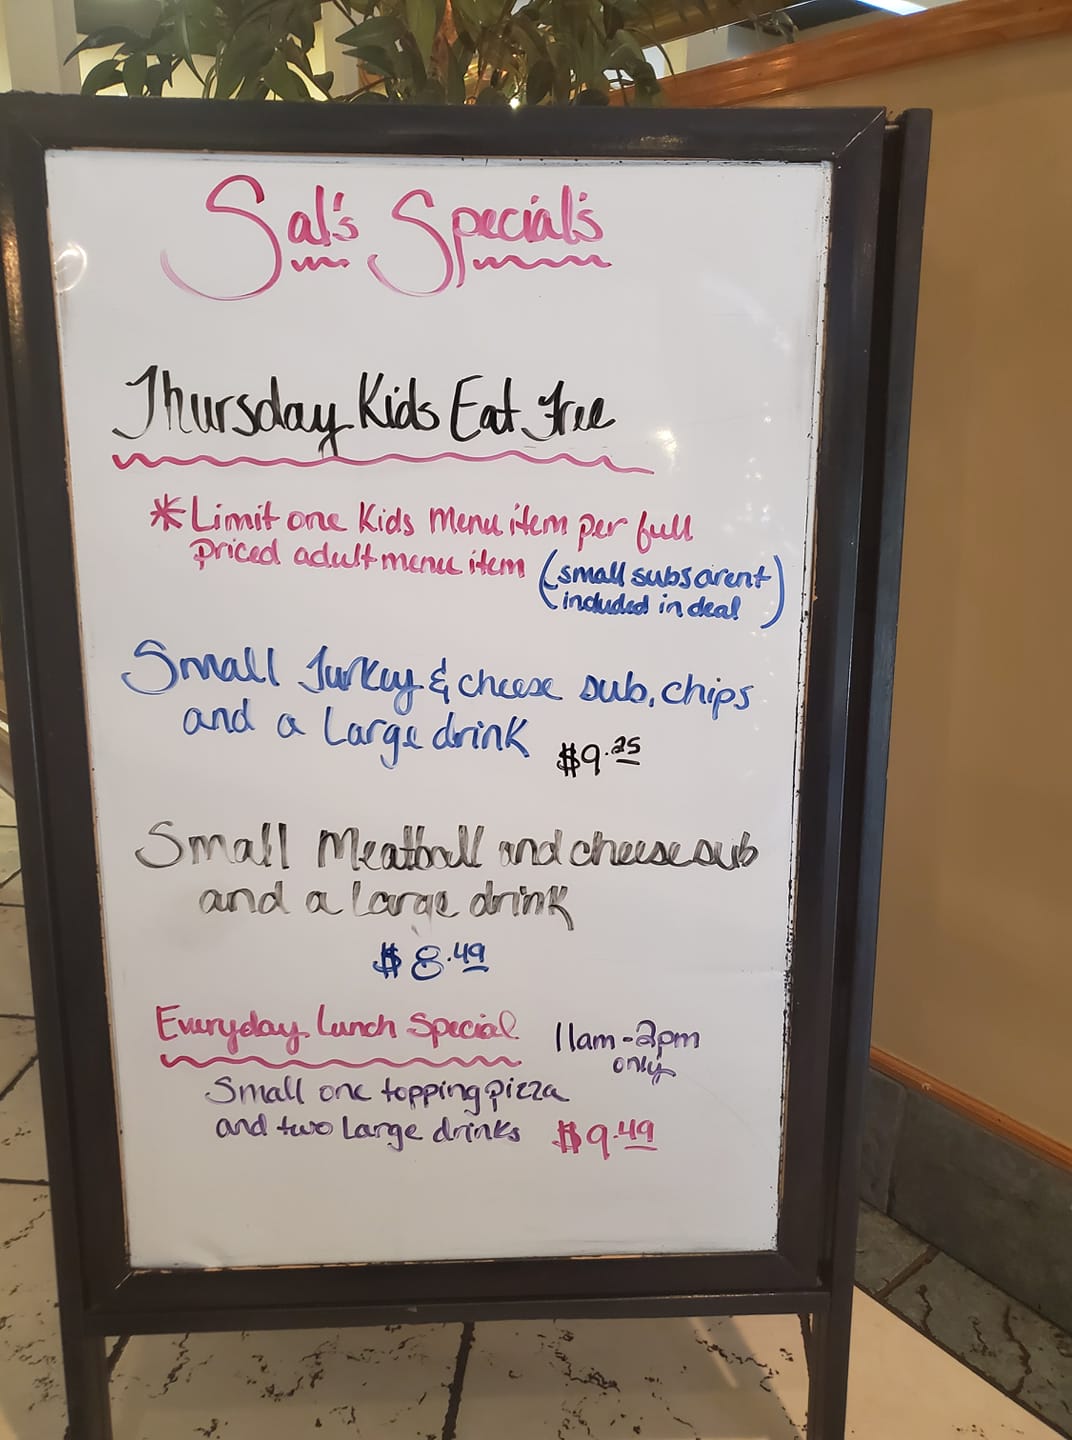 Sal's Special's
Thursday Kids Eat Free
* Limit one Kids Menu item per full
priced adult menu item (small subs arent
included in deal)
Small Turkey & cheese sub, chips
and a Large drink $9.25
Small Meatball and cheese sub
and a large drink
$8.49
Everyday Lunch Special 11am-2pm
only
Small one topping pizza
and two Large drinks $9.49